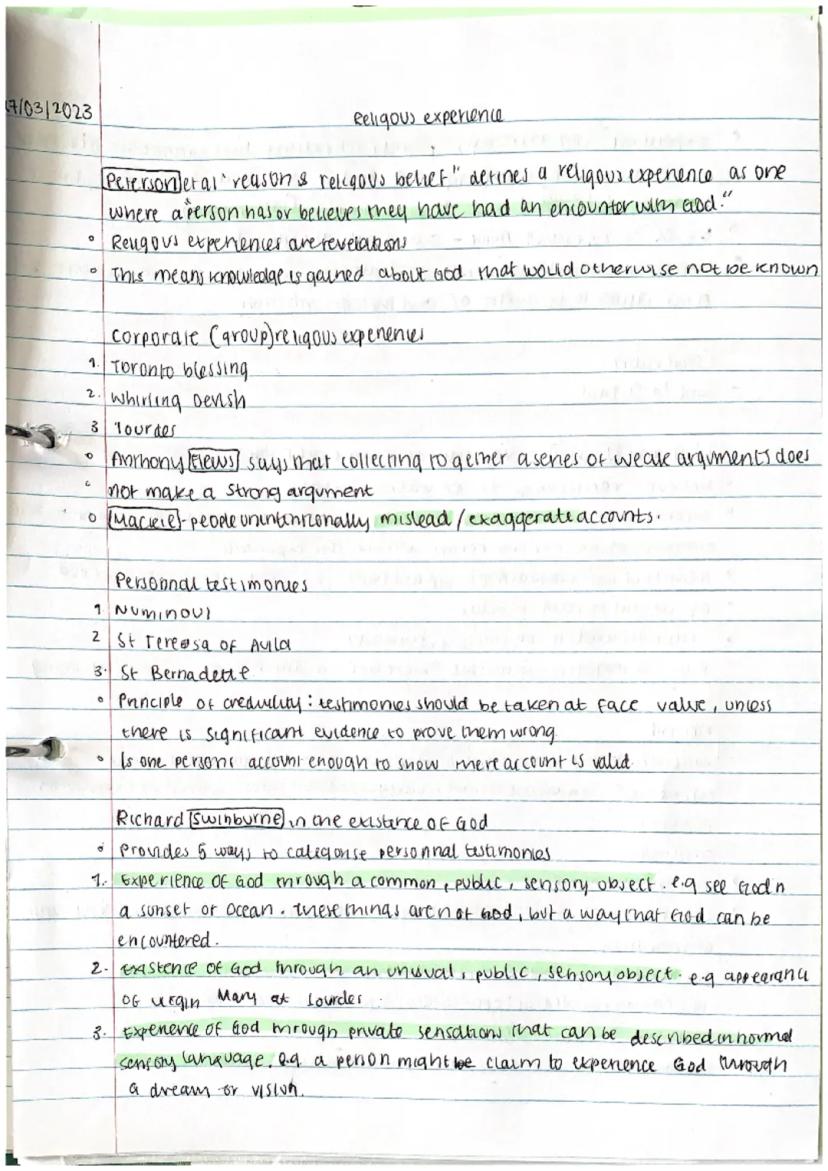 7/03/2023
Religous experience
Peterson et al "reason & religous belief" defines a religous experience as one
where a "person has or believes they have had an encounter with God."
° Religous experiences are revelations
° This means knowledge is gained about God that would otherwise not be known
Corporate (group) religous experiences
1. Toronto blessing
2. Whirling Devish
3 lourdes
° Anthony Flews says that collecting together a series of weak arguments does
° not make a strong argument
° Mackie - people unintentionally mislead / exaggerate accounts.
Personnal testimonies
1 Numinous
2 St Tereosa of Avila
3. St Bernadette
° Principle of credulity : testimonies should be taken at face value, unless
there is significant evidence to prove them wrong
° Is one persons account enough to show there account is valid.
Richard Swinburne in the existence of God
° Provides 5 ways to catigorise personnal testimonies
1. Experience of God through a common, public, sensory object. e.g see God in
a sunset or ocean. These things are not God, but a way that God can be
encountered.
2. Existence of God through an unusual, public, sensory object. e.g appearance
of virgin Mary at Lourdes.
3. Experience of God through private sensations that can be described in normal
sensory language. e.g. a person might be claim to experience God through
a dream or vision.